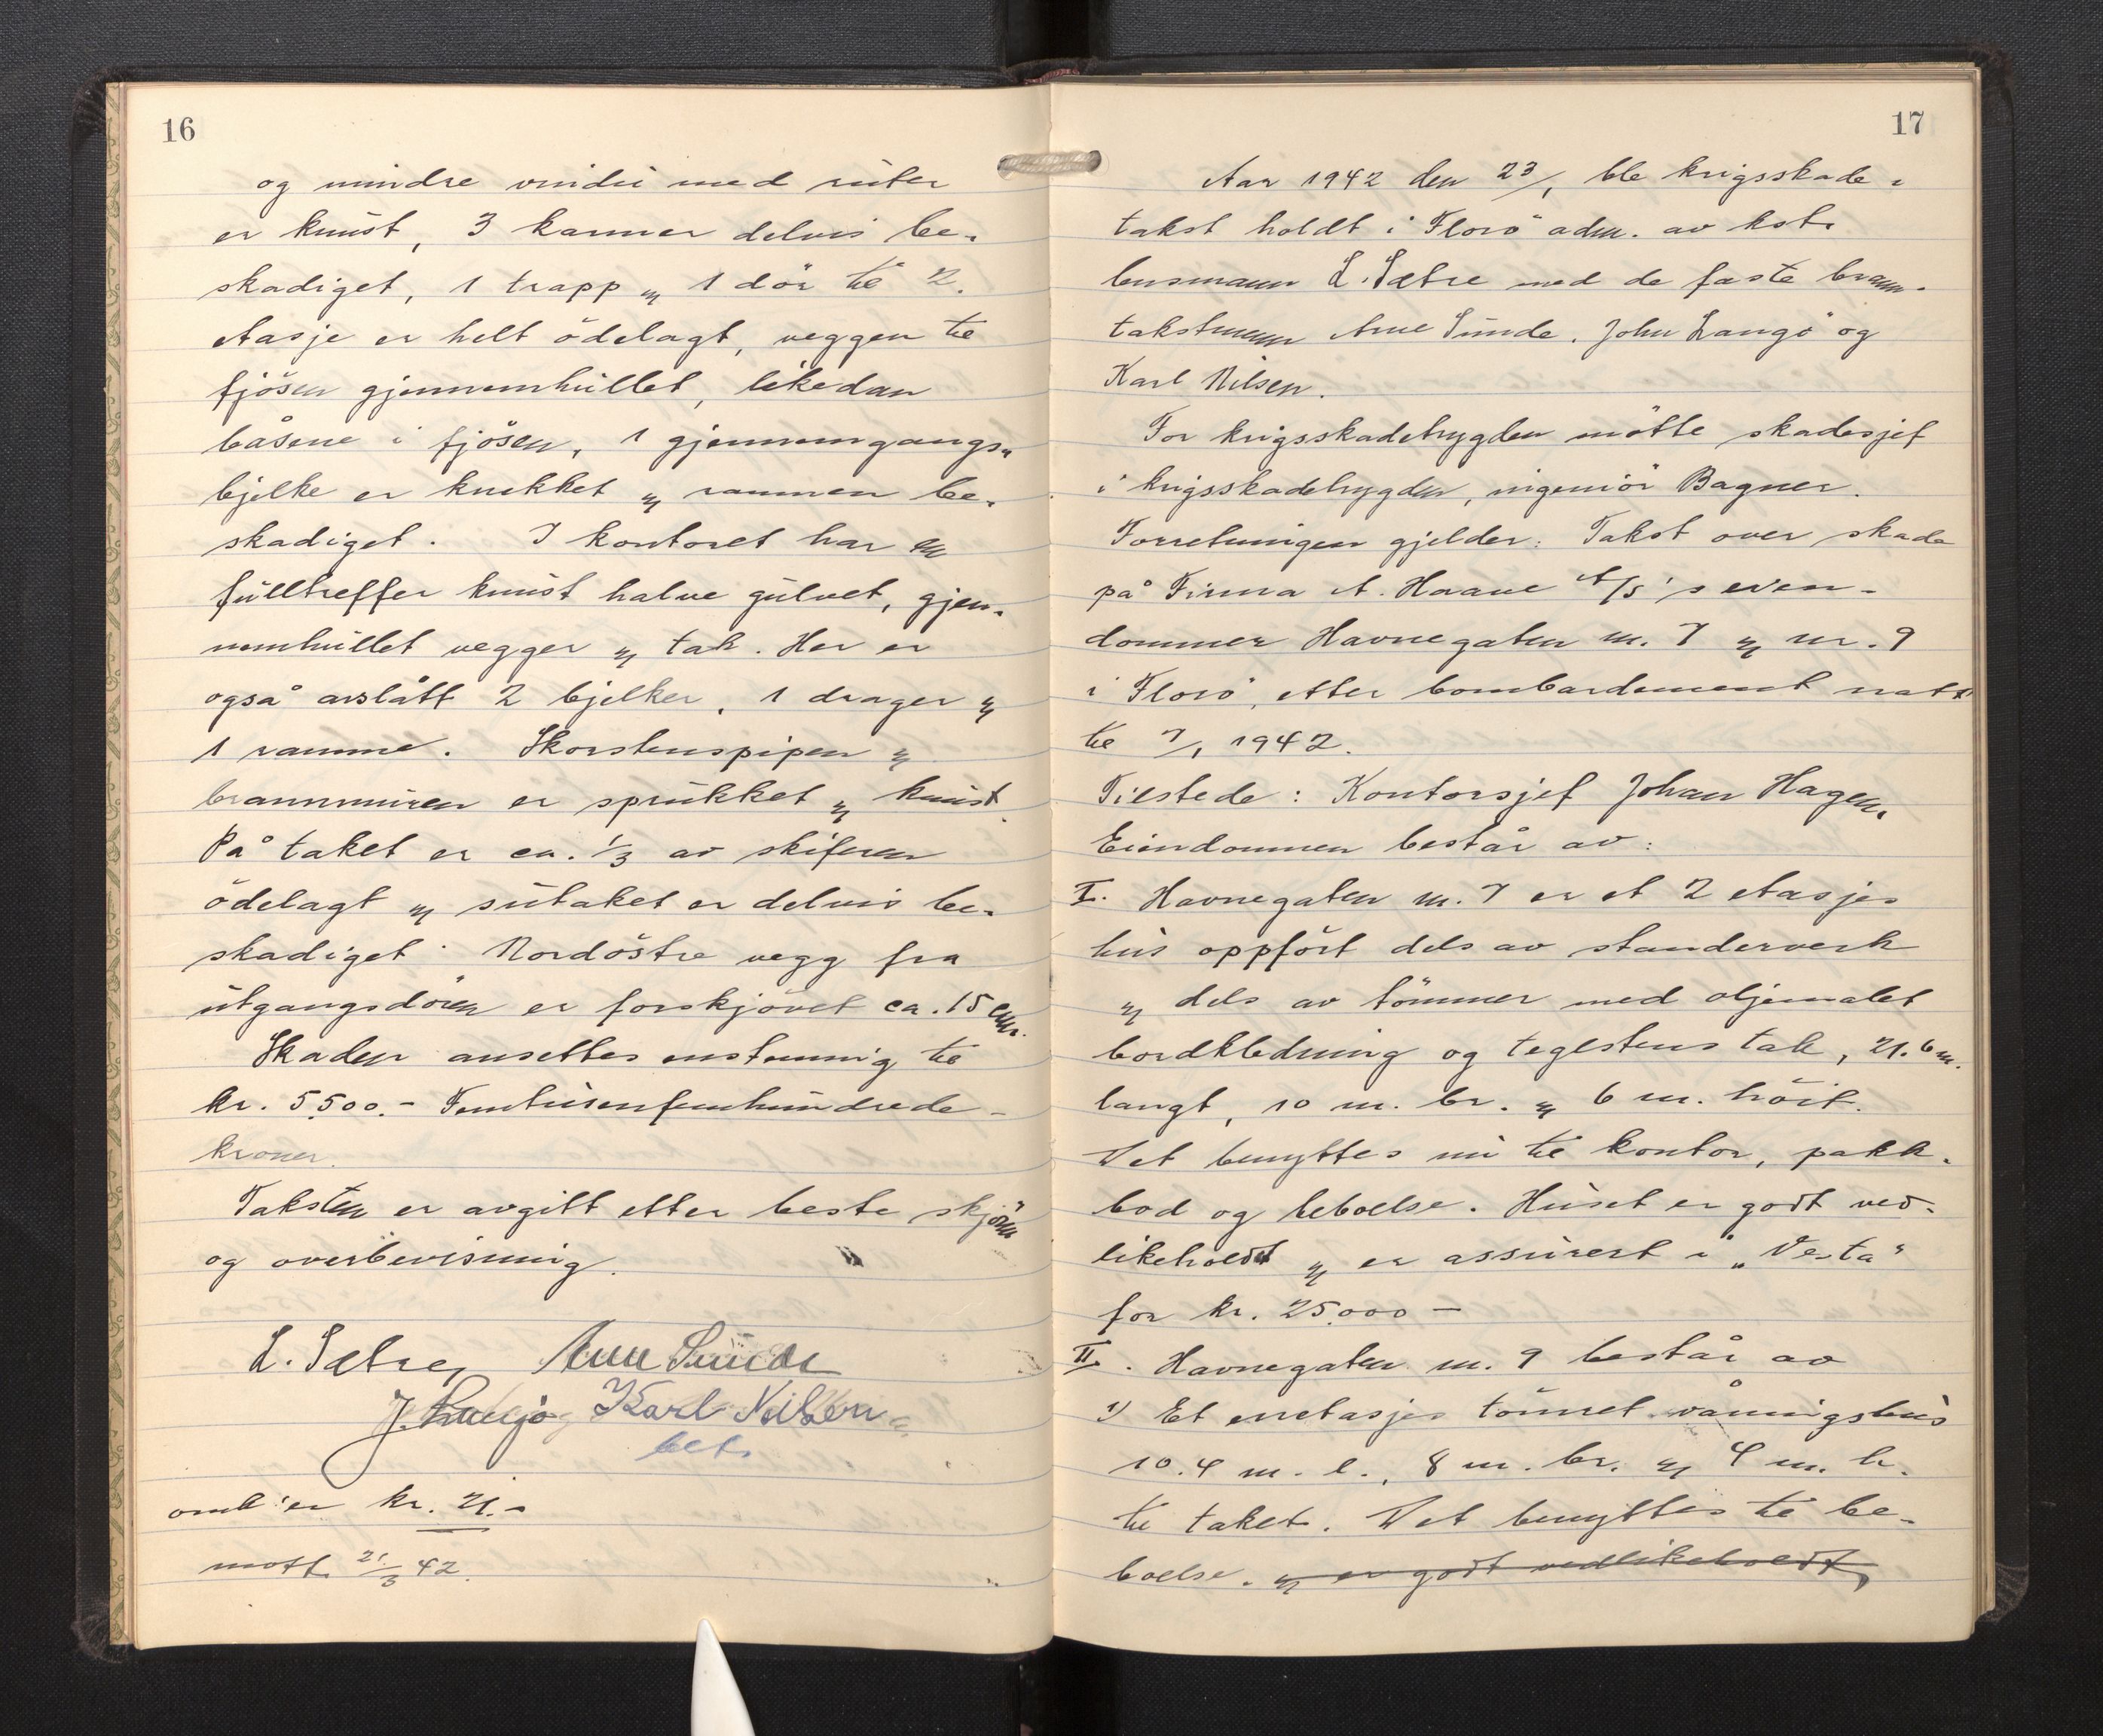 16
og mindre vindu med ruter
er knust, 3 karmer delvis be-
skadiget, 1 trapp og 1 dör til 2.
etasje er helt ödelagt, veggen til
fjösen gjennemhullet, likedan
båsene i fjösen, 1 gjennemgangs-
bjelke er knekket og rammen be-
skadiget. I kontoret har en
fulltreffer knust halve gulvet, gjen-
nemhullet vegger og tak. Her er
også avslått 2 bjelker, 1 drager og
1 ramme. Skorstenspipen og
brannmuren er sprukket og knust.
På taket er ca. 1/3 av skiferen
ödelagt og sutaket er delvis be-
skadiget. Nordöstre vegg fra
utgangsdören er forskjövet ca. 15 cm.
Skaden ansettes enstemmig til
kr. 5.500.- Femtusenfemhundrede-
kroner.
Taksten er avgitt etter beste skjönn
og overbevisning.
L. Sætre, Arne Sunde
J. Langö Karl Nilsen
bet.
omk'er kr. 21.-
mott. 21/3 42.
17
Aar 1942 den 23/1 ble krigsskade-
takst holdt i Florö adm. av kst.
lensmann L. Sætre med de faste brann-
takstmenn Arne Sunde, John Langö og
Karl Nilsen.
For krigsskadetrygden mötte skadesjef
i krigsskadetrygden, ingeniör Bagner.
Forretningen gjelder: Takst over skade
på Firma A. Haave A/S's eien-
dommer Havnegaten nr. 7 og nr. 9
i Florö, etter bombardement natt
til 7/1 1942.
Tilstede: Kontorsjef Johan Hagen.
Eiendommen består av:
I. Havnegaten nr. 7 er et 2 etasjes
hus oppfört dels av standerverk
og dels av tömmer med oljemalet
bordkledning og teglstens tak, 21.6 m.
langt, 10 m. br. og 6 m. höit.
Det benyttes nu til kontor, pakk-
bod og beboelse. Huset er godt ved-
likeholdt og er assurert i "Vesta"
for kr. 25.000 -
II. Havnegaten nr. 9 består av
1) Et enetasjes tömret våningshus
10.4 m. l., 8 m. br. og 4 m. h.
til taket. Det benyttes til be-
boelse. og er godt vedlikeholdt,